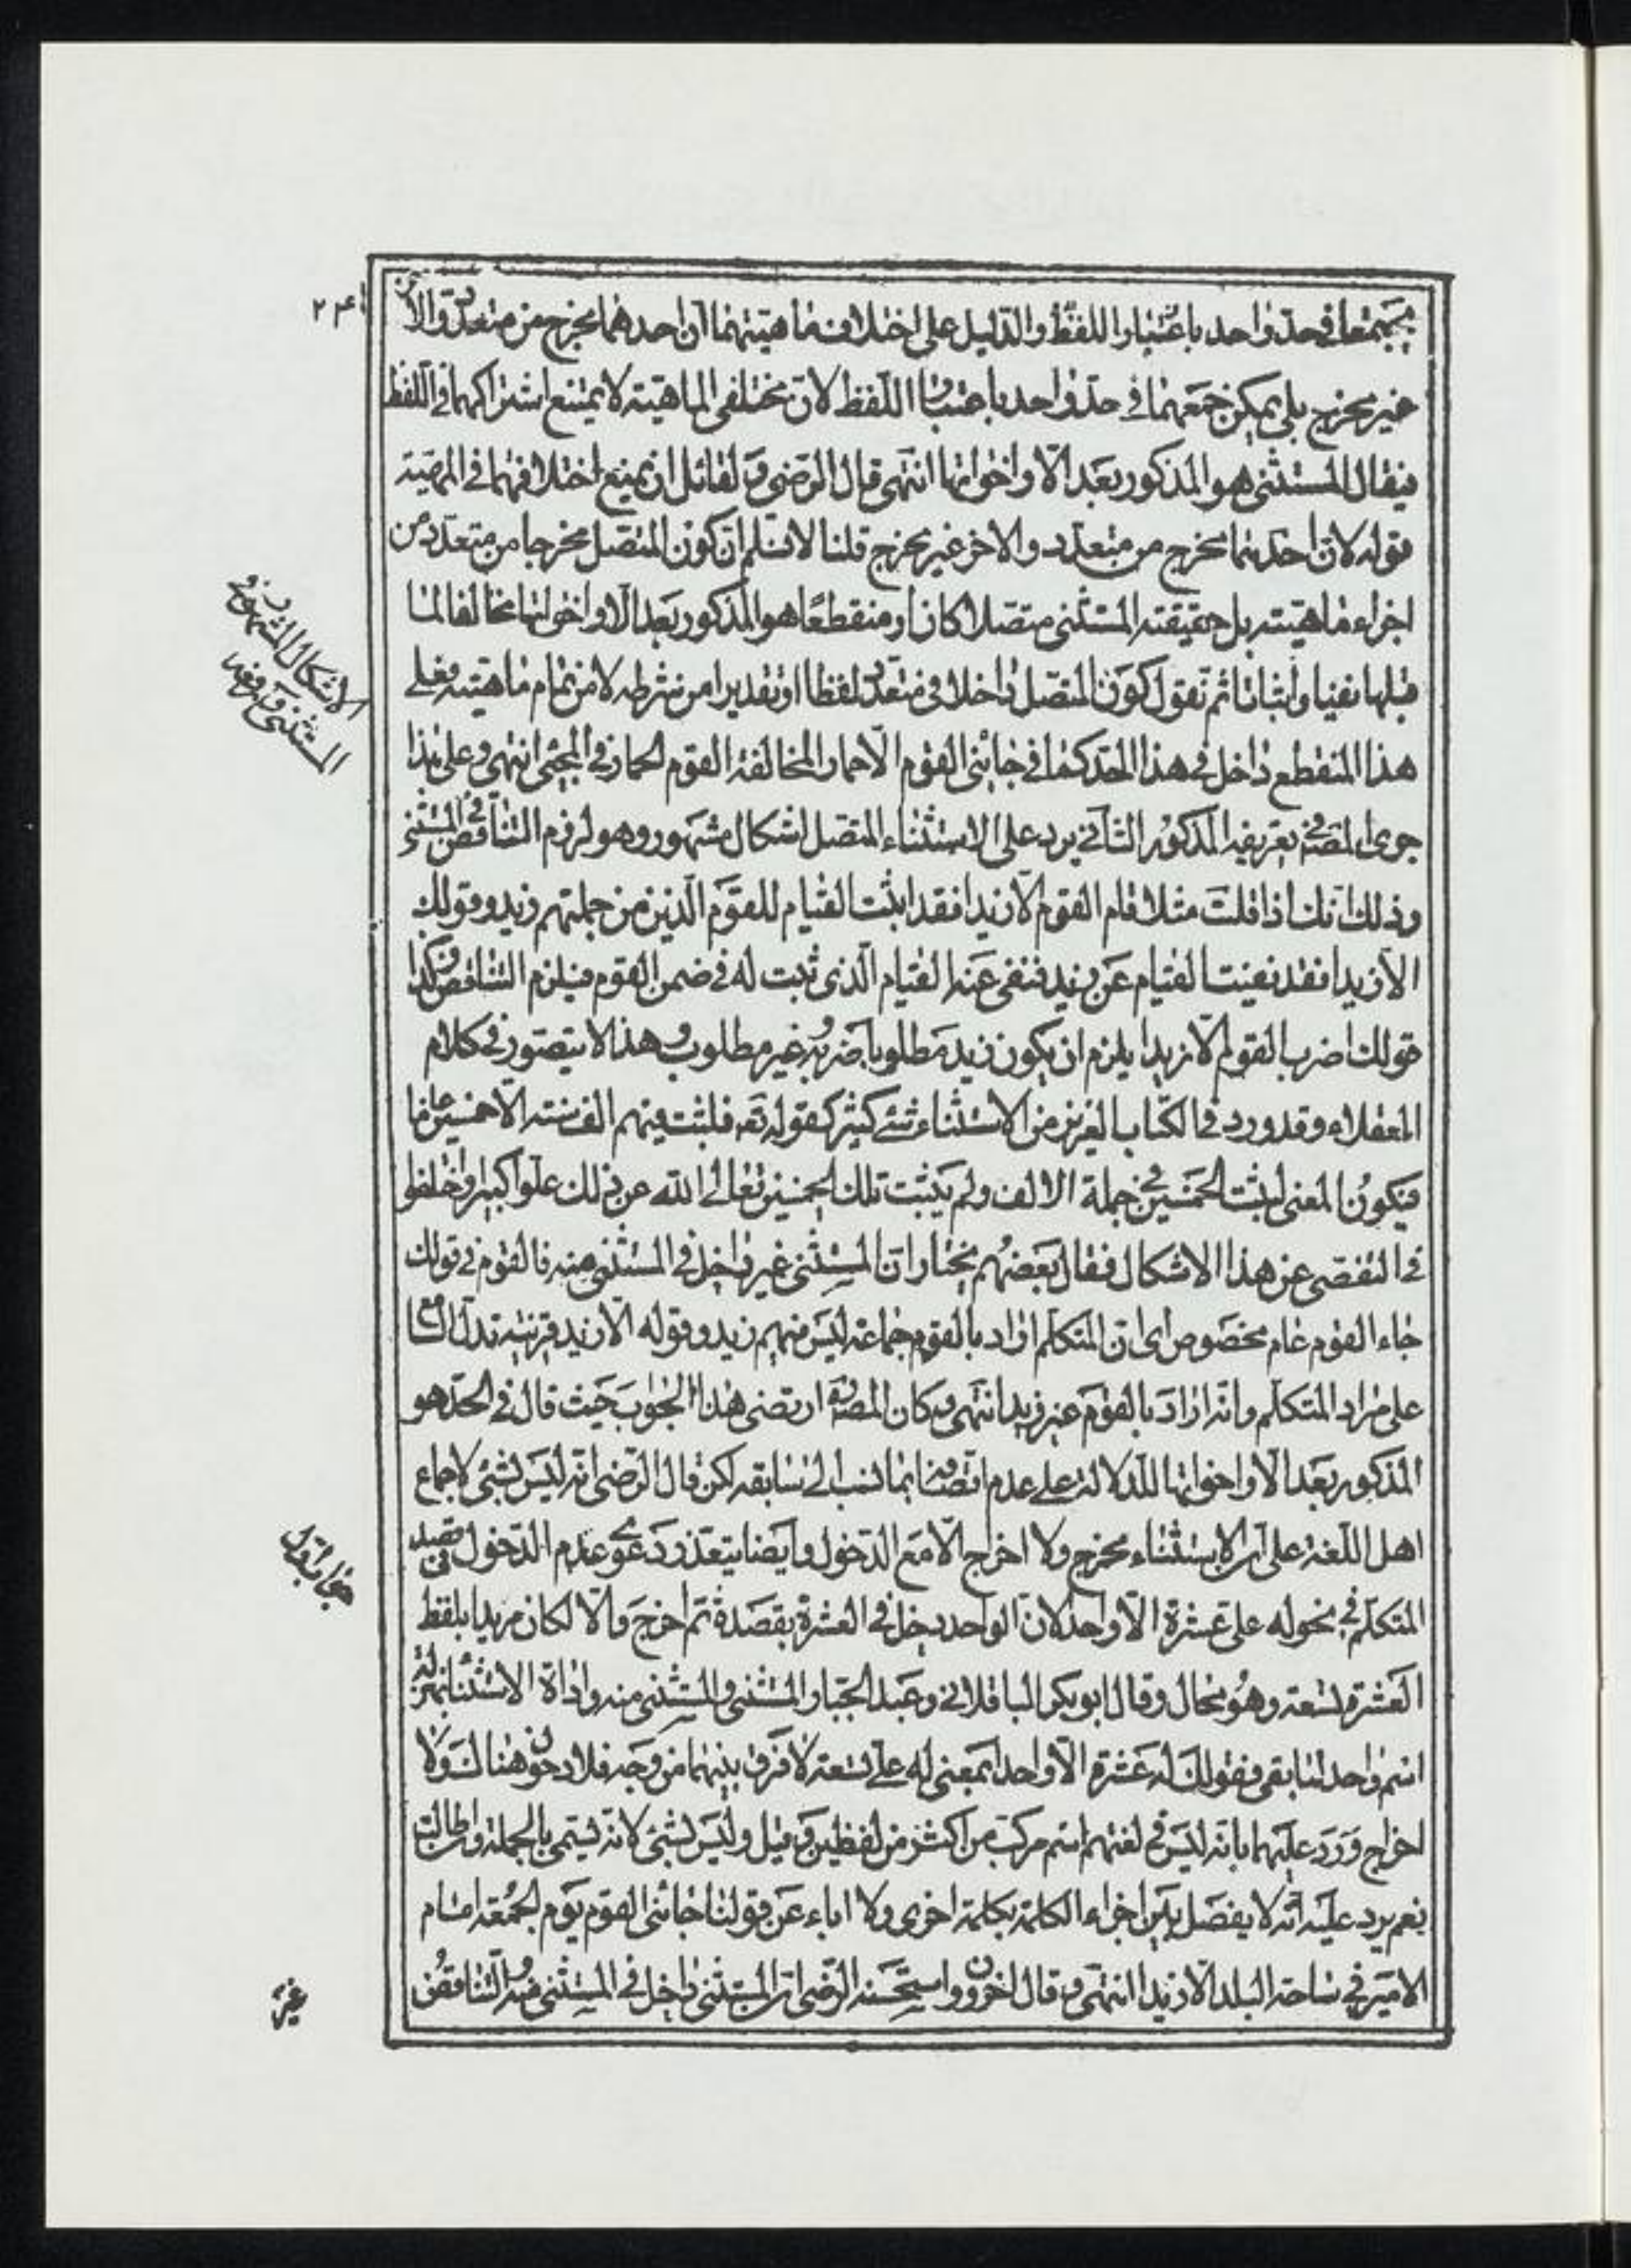 يجتمعا في حد واحد باعتبار اللفظ والدليل على اختلاف ماهيتهما ان احدهما مخرج من متعدد والاخر
غير مخرج بلى يمكن جمعهما في حد واحد باعتبار اللفظ لان مختلفي الماهية لا يمتنع اشتراكهما في اللفظ
فيقال المستثنى هو المذكور بعد الا واخواتها انتهى قال الرضي ره لقائل ان يمنع اختلافهما في المهية
قوله لان احدهما مخرج من متعدد والاخر غير مخرج قلنا لا نسلم ان كون المتصل مخرجا من متعدد من
اجزاء ماهيته بل حقيقة المستثنى متصلا كان او منقطعا هو المذكور بعد الا واخواتها مخالفا لما
قبلها نفيا واثباتا ثم نقول كون المتصل داخلا في متعدد لفظا او تقديرا من شرطه لا من تمام ماهيته فعلى
هذا المنقطع داخل في هذا الحد كما في جائني القوم الا حمارا لمخالفة القوم الحمار في المجيء انتهى وعلى هذا
جرى المصنف في تعريفه المذكور الثاني يرد على الاستثناء المتصل اشكال مشهور وهو لزوم التناقض في المستثنى
وذلك انك اذا قلت مثلا قام القوم الا زيدا فقد اثبت القيام للقوم الذين من جملتهم زيد وقولك
الا زيدا فقد نفيت القيام عن زيد فنفى عنه القيام الذي ثبت له في ضمن القوم فيلزم التناقض وكذا
قولك اضرب القوم الا زيدا يلزم ان يكون زيد مطلوبا ضربه وغير مطلوب وهذا لا يتصور في كلام
العقلاء وقد ورد في الكتاب العزيز من الاستثناء شئ كثير كقوله تعه فلبث فيهم الف سنة الا خمسين عاما
فيكون المعنى لبث الخمسين في جملة الالف ولم يلبث تلك الخمسين تعالى الله عن ذلك علوا كبيرا واختلفوا
في التفصي عن هذا الاشكال فقال بعضهم نختار ان المستثنى غير داخل في المستثنى منه فالقوم في قولك
جاء القوم عام مخصوص اي ان المتكلم اراد بالقوم جماعة ليس منهم زيد وقوله الا زيد قرينة تدل السامع
على مراد المتكلم وانه اراد بالقوم غير زيد انتهى وكان المصنف ارتضى هذا الجواب حيث قال في الحد هو
المذكور بعد الا واخواتها للدلالة على عدم اتصافه بما نسب الى سابقه لكن قال الرضي انه ليس بشئ لاجماع
اهل اللغة على ان الاستثناء مخرج ولا اخراج الا مع الدخول وايضا يتعذر دعوى عدم الدخول في قصد
المتكلم في نحو له علي عشرة الا واحد لان الواحد دخل في العشرة بقصده ثم اخرج والا لكان مريدا بلفظ
العشرة تسعة وهو محال وقال ابو بكر الباقلاني وعبد الجبار المستثنى والمستثنى منه واداة الاستثناء بمنزلة
اسم واحد لما بقي فقولك له عشرة الا واحدا بمعنى له علي تسعة لا فرق بينهما من وجه فلا دخول هناك ولا
اخراج ورد عليهما بانه ليس في لغتهم اسم مركب من اكثر من لفظين وقيل وليس بشئ لانه يسمى بالجملة وان طالت
نعم يرد عليه انه لا يفصل بين اجزاء الكلمة بكلمة اخرى ولا اباء عن قولنا جائني القوم يوم الجمعة امام
الامير في ساحة البلد الا زيدا انتهى وقال اخرون واستحسنه الرضي ان المستثنى داخل في المستثنى منه والتناقض
الاشكال المشهور في
المستثنى ودفعه
غير